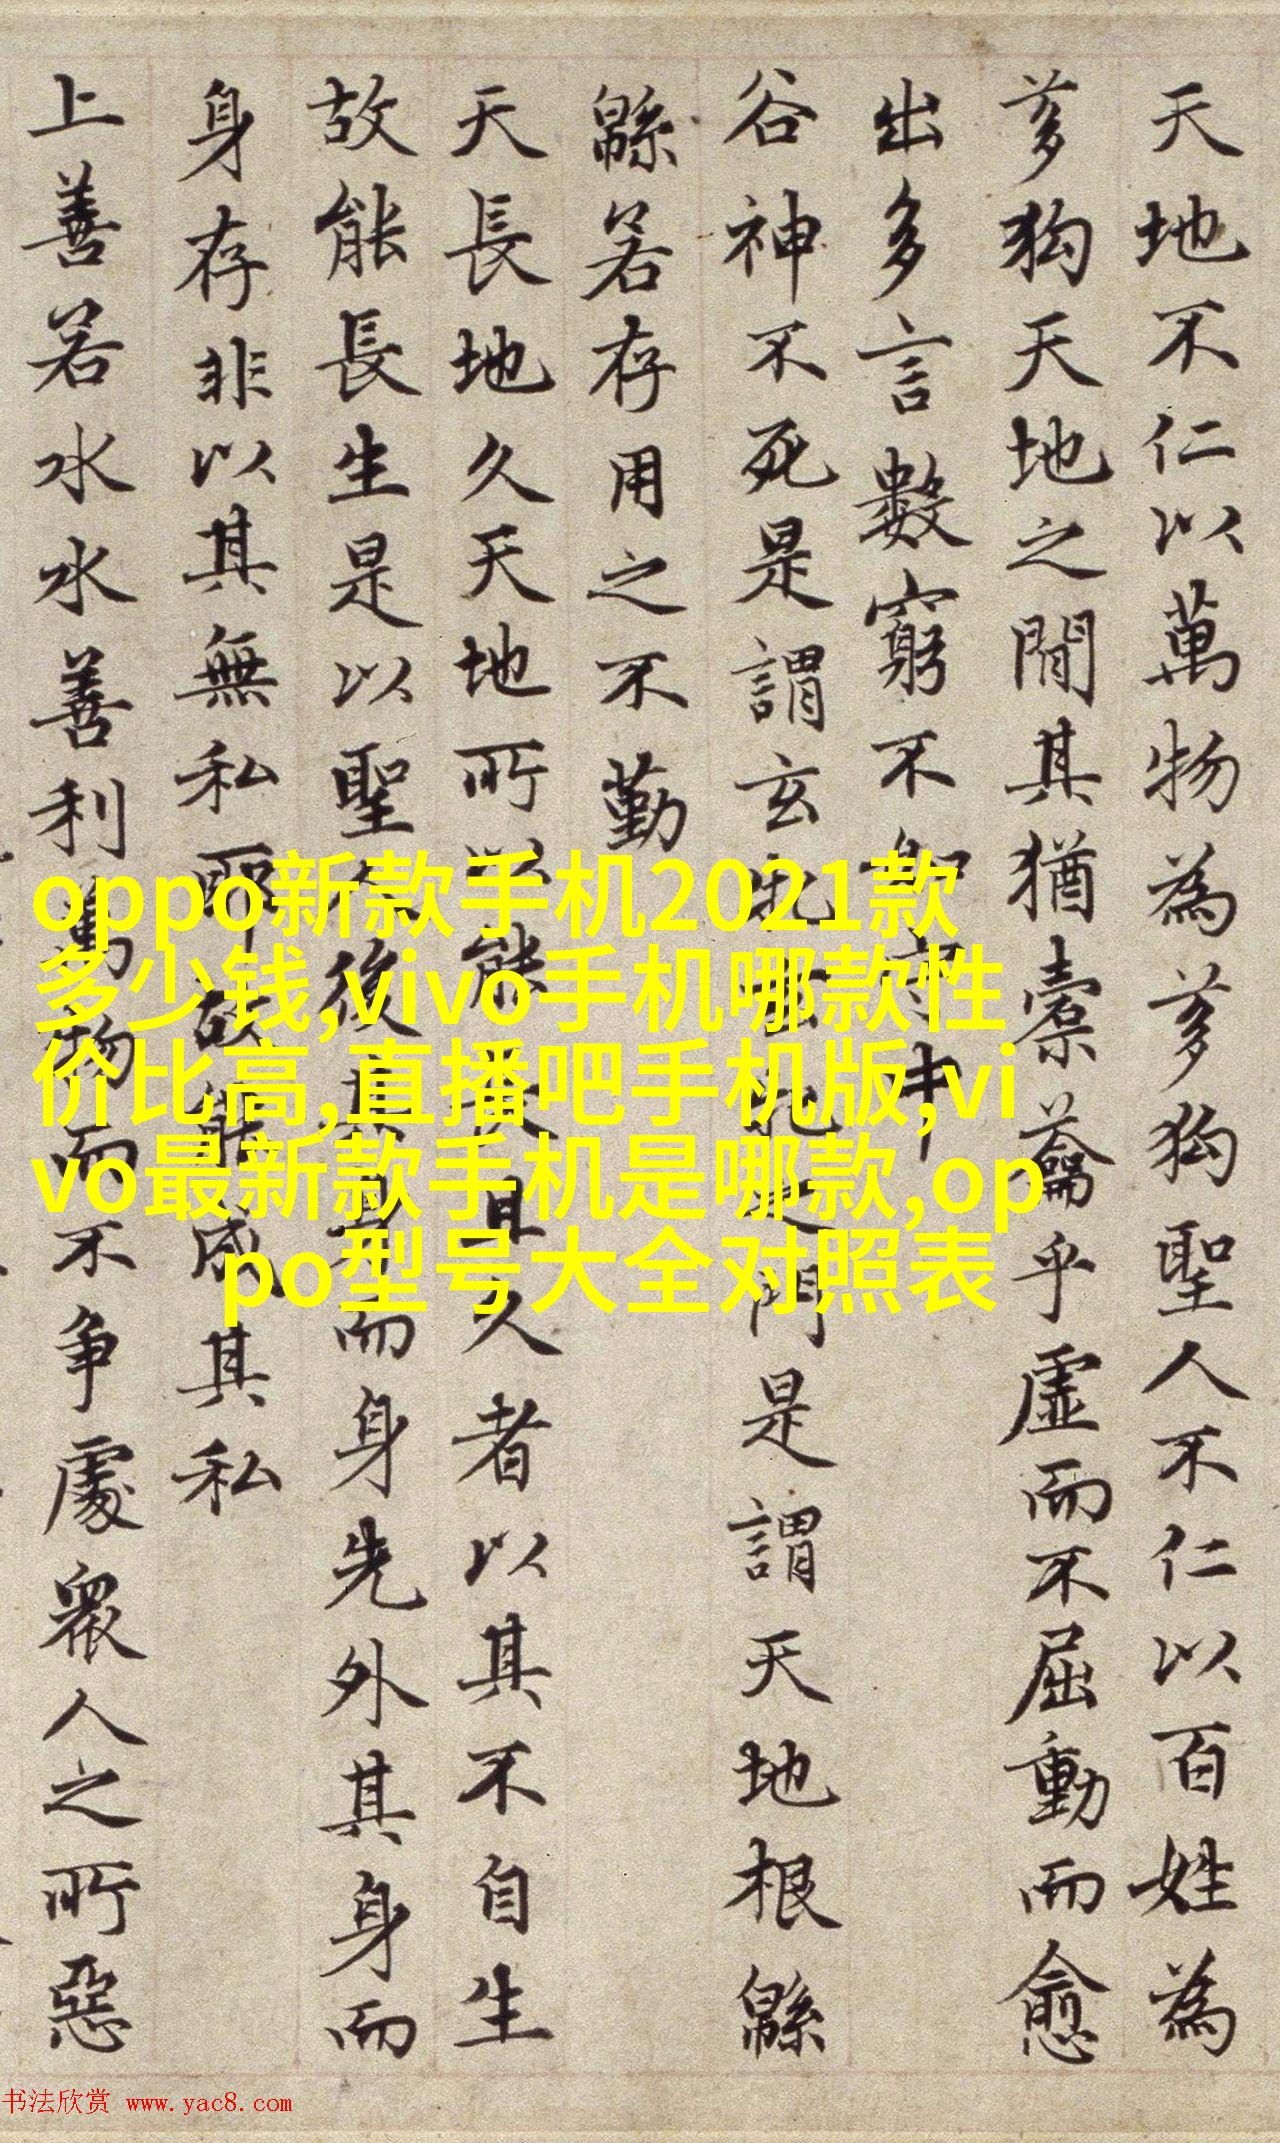 天地不仁以萬物為芻狗聖人不仁以百姓為
芻狗天地之間其猶橐籥乎虛而不屈動而愈
出多言數窮不如守中
谷神不死是謂玄牝玄牝之門是謂天地根緜
緜若存用之不勤
天長地久天地所以能長且久者以其不自生
故能長生是以聖人後其身而身先外其身而
身存非以其無私耶故能成其私
上善若水水善利萬物而不爭處衆人之所惡
oppo新款手机2021款
多少钱,vivo手机哪款性
价比高,直播吧手机版,vi
vo最新款手机是哪款,op
po型号大全对照表
书法欣赏 www.yac8.com